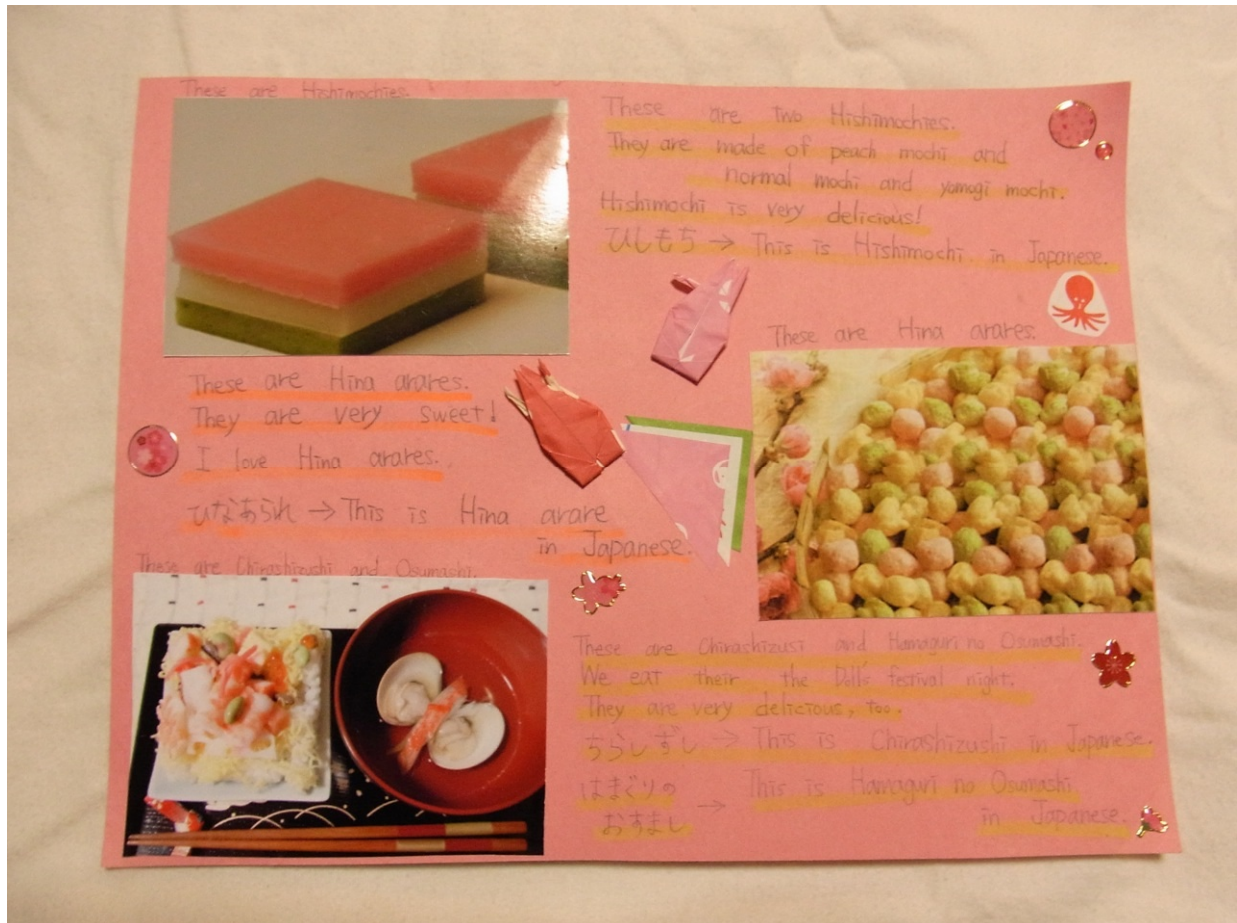 These are Hishimochies.
These are two Hishimochies.
They are made of peach mochi and
normal mochi and yomogi mochi.
Hishimochi is very delicious!
ひしもち → This is Hishimochi in Japanese.
These are Hina arares.
They are very sweet!
I love Hina arares.
ひなあられ → This is Hina arare
in Japanese.
These are Hina arares.
These are Chirashizushi and Osumashi.
These are Chirashizusi and Hamaguri no Osumashi.
We eat their the Doll's festival night.
They are very delicious, too.
ちらしずし → This is Chirashizushi in Japanese.
はまぐりの
おすまし → This is Hamaguri no Osumashi
in Japanese.